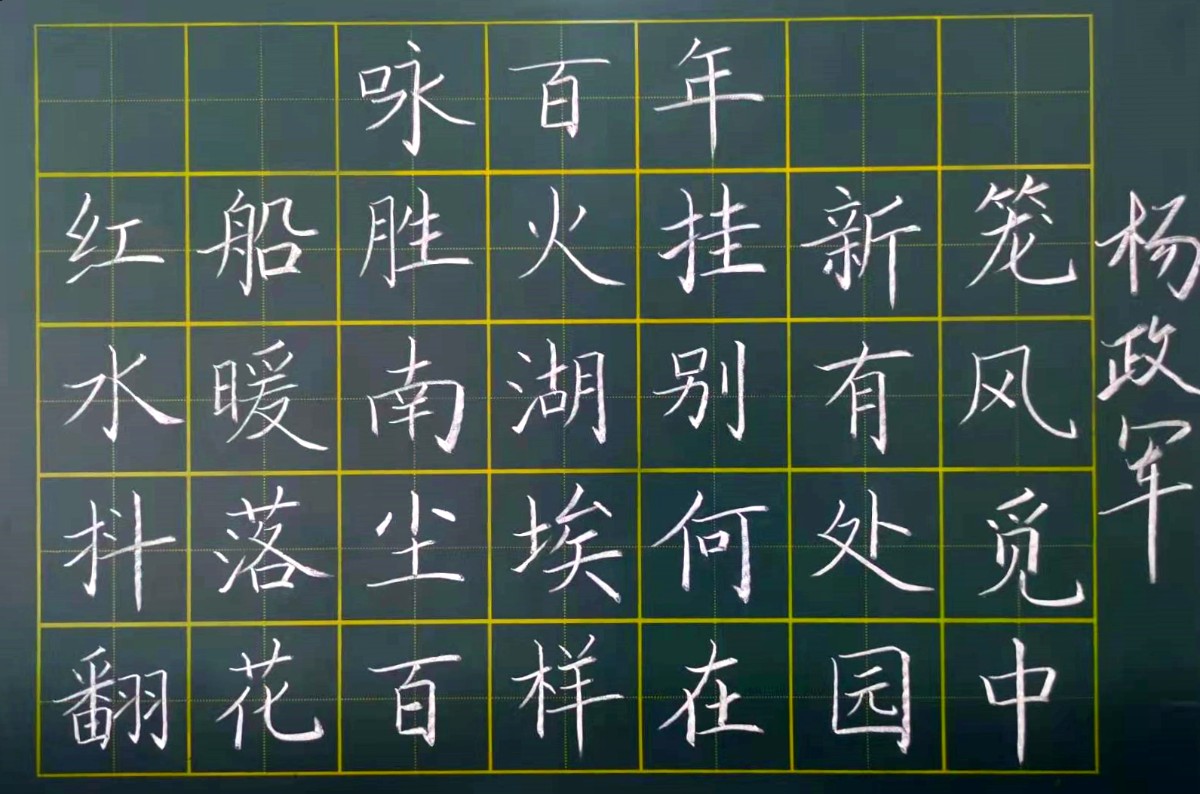 咏百年
红船胜火挂新笼
水暖南湖别有风
抖落尘埃何处觅
翻花百样在园中
杨政军